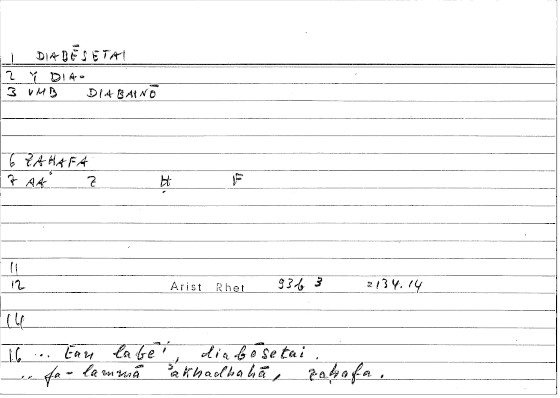 1 DIABĒSETAI
2 Y DIA-
3 VMB DIABAINŌ
6 ZAḤAFA
7 AA° Z Ḥ F
11
12 Arist Rhet 93b 3 =134.14
14
16 ... tan labēi, diabēsetai.
... fa-lammā ʾakhadhahā, zaḥafa.